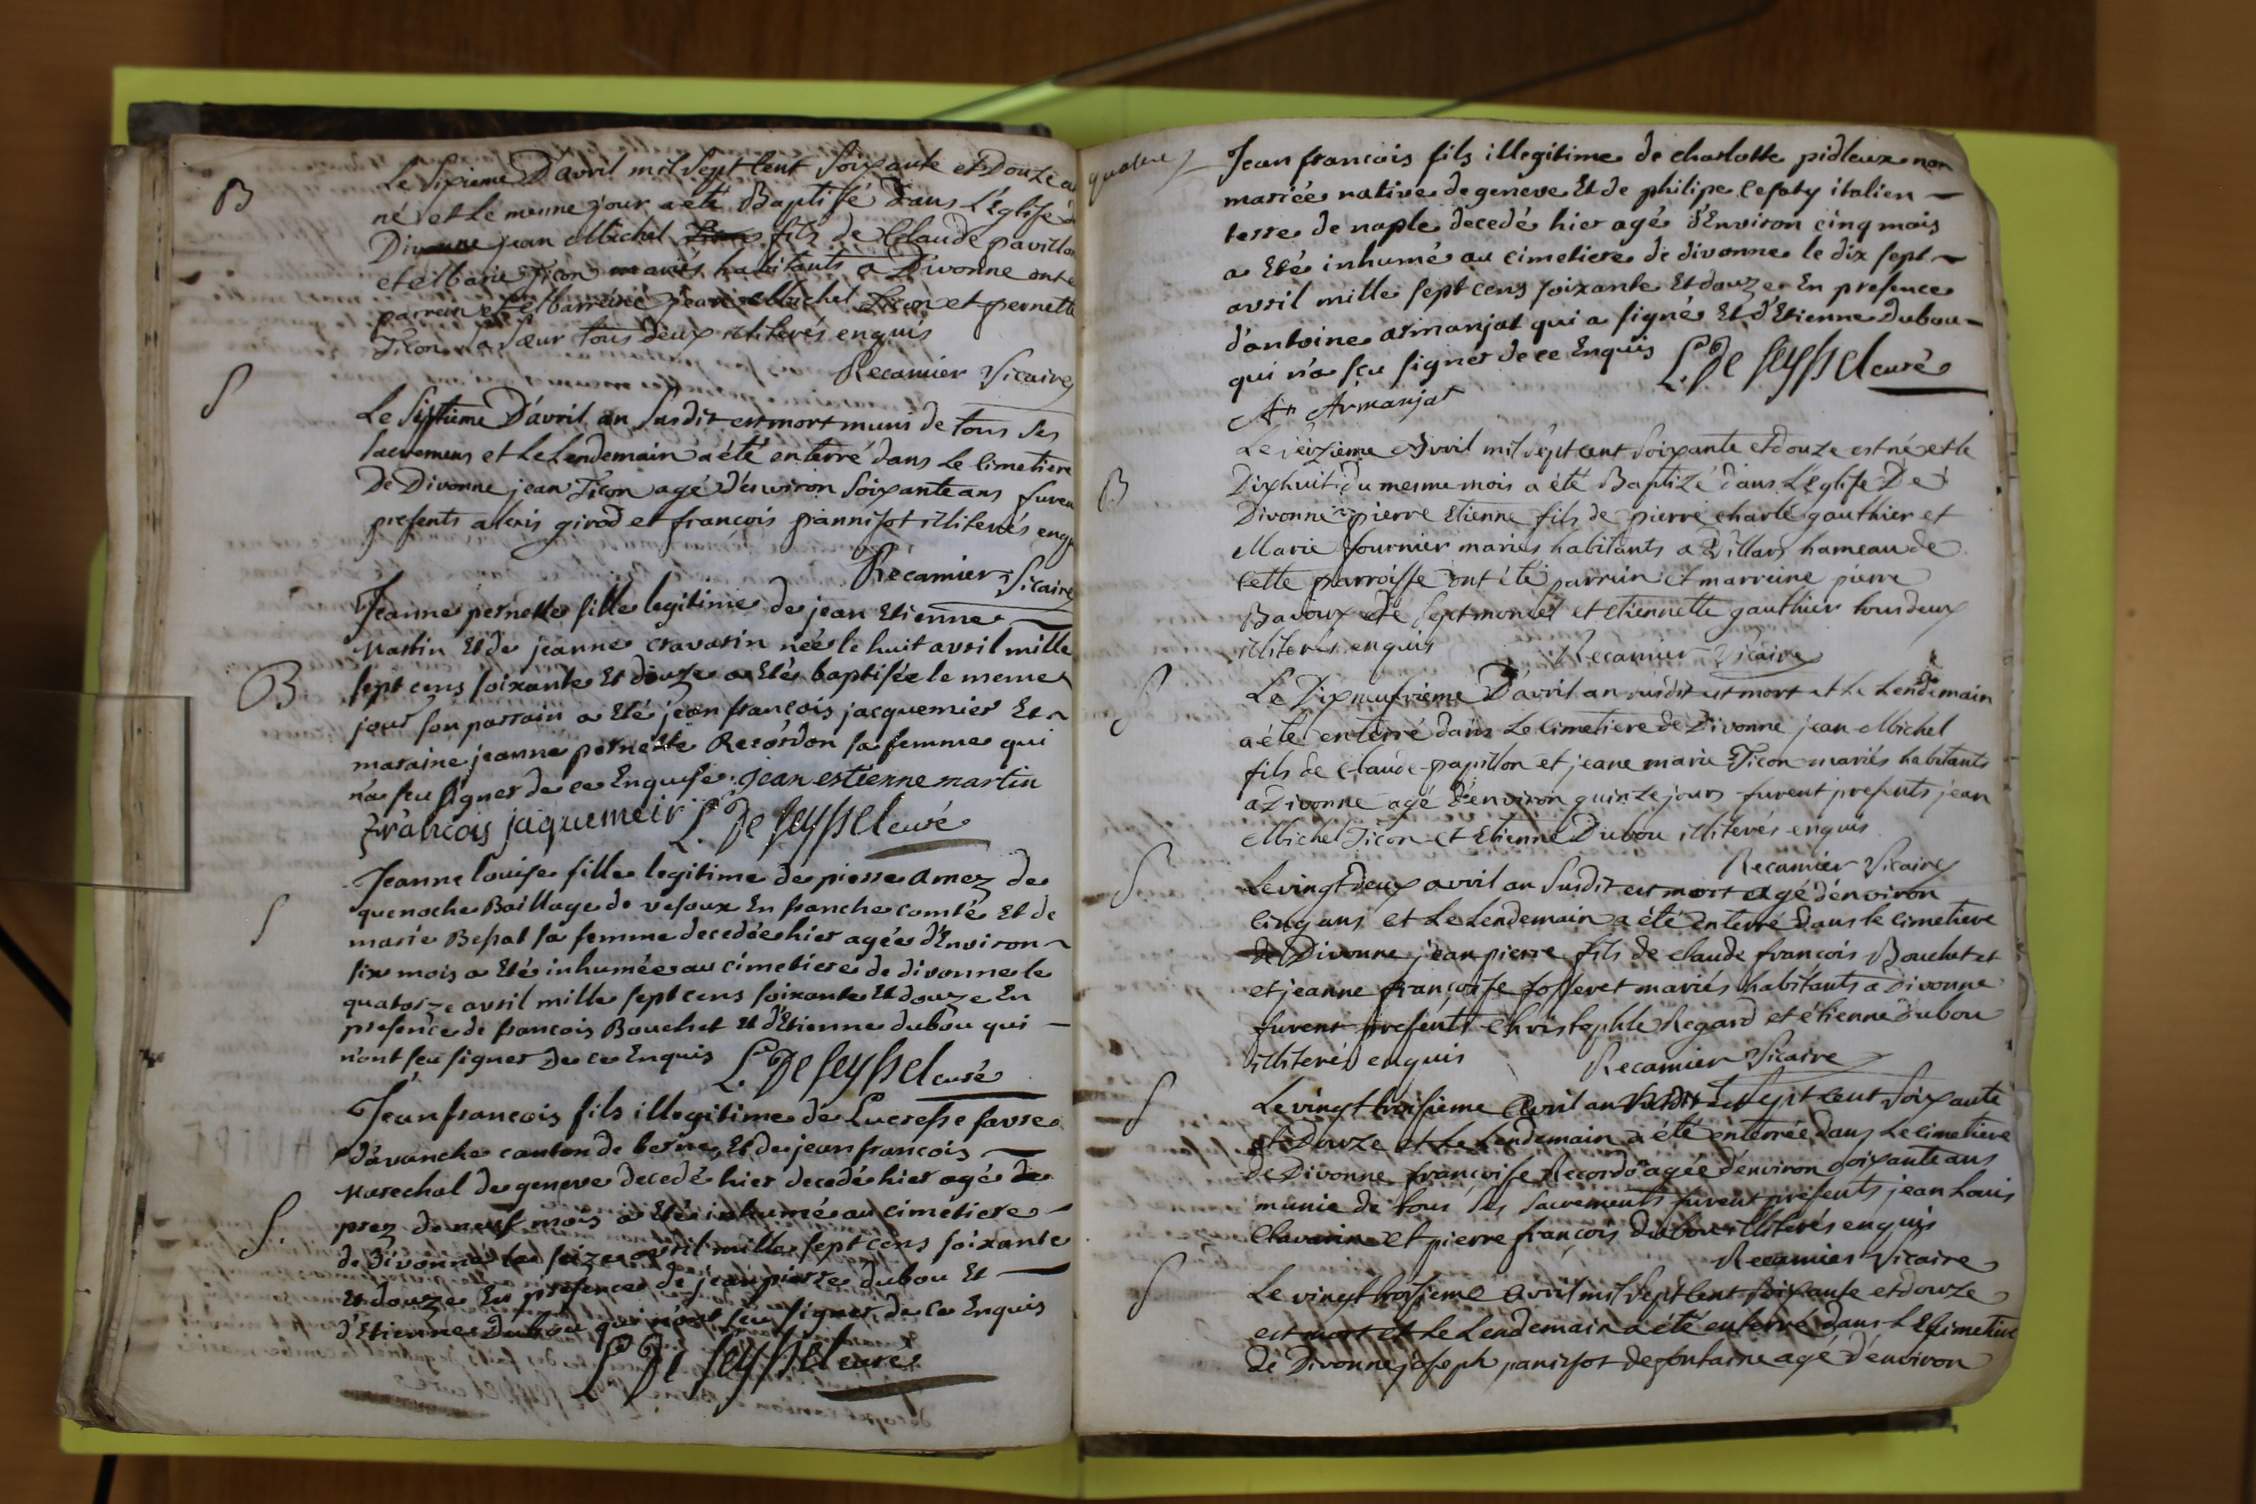 B
Le Sixieme D'avril mil Sept Cent Soixante et Douze a
né et le meme jour a eté Baptisé Dans L'Eglise
Divonne jean Michel fils de Claude pavillon
et Marie Ticon mariés habitants a Divonne ont
parrain et Marreine jean Michel Ticon et pernette
Ticon sa sœur tous deux illiterés enquis
Recamier Vicaire
S
Le Septieme D'avril an Susdit est mort muni de tous Ses
Sacremens et le Lendemain a été enterré dans Le Cimetiere
De Divonne jean Ticon agé d'environ Soixante ans furen
presents alexis girod et françois pannisot illiterés enqu
Recamier Vicaire
B
Jeanne pernette fille legitime de jean Etienne
Martin Et de jeanne cravarin née le huit avril mille
sept cens soixante Et douze a Eté baptisée le meme
jour son parrain a Eté jean françois jacquemier Et
maraine jeanne pernette Recordon sa femme qui
n'a sçu signer de ce Enquise. jean estienne martin
françois jaquemeir L. De Seyssel curé
S
Jeanne louise fille legitime de pierre amez de
quenoche Baillage de vesoux En franche comté Et de
marie Besat sa femme decedée hier agée d'Environ
six mois a Eté inhumée au cimetiere de divonne le
quatorze avril mille sept cens soixante Et douze En
presence de francois Bouchet Et d'Etienne dubou qui
n'ont sçu signer De ce Enquis L. De Seyssel curé
S.
Jean francois fils illegitime de Lucresse favre
d'avanche canton de berne, Et de jean francois
Marechal de geneve decedé hier decedé hier agé de
prez de neuf mois a Eté inhumé au cimetiere
de Divonne le seize avril mille sept cens soixante
Et douze En presence de jean pierre dubou Et
d'Etienne Dubou qui n'ont sçu signer de ce Enquis
L. De Seyssel curé
quatre
Jean francois fils illegitime de charlotte pidleux non
mariée native de geneve Et de philipe Cefaty italien
terre de naple decedé hier agé d'Environ cinq mois
a Eté inhumé au cimetiere de divonne le dix sept
avril mille sept cens soixante Et douze En presence
d'antoine armanjat qui a signé Et d'Etienne Dubou
qui n'a sçu signer de ce Enquis L. De Seyssel curé
An Armanjat
B
Le seizieme Avril mil sept cent Soixante et Douze est né et le
Dixhuit du mesme mois a été Baptizé dans L'Eglise De
Divonne pierre Etienne fils de pierre charle gauthier et
Marie fournier mariés habitants a Villars hameau de
cette parroisse ont été parrein et marreine pierre
Bavoux de Septmoncel et Etiennette gauthier tous deux
illiterés enquis Recamier Vicaire
S
Le Dix neufvieme D'avril an susdit est mort et Le Lendemain
a été enterré dans Le Cimetiere de Divonne jean Michel
fils de Claude papillon et jeane marie Ticon mariés habitants
a Divonne agé d'environ quinze jours furent presents jean
Michel Ticon et Etienne Dubou illiterés enquis
Recamier Vicaire
S
Le vingt deux avril an Susdit est mort agé d'environ
Cinq ans et Le Lendemain a été enterré Dans le Cimetiere
de Divonne jean pierre fils de Claude françois Bouchet et
et jeanne françoise fosseret mariés habitants a Divonne
furent presents Christophle Regard et étienne dubou
illiterés enquis Recamier Vicaire
S
Le vingt troisieme Avril an susdit Sept Cent Soixante
et Douze et Le Lendemain a été enterrée dans Le Cimetiere
de Divonne françoise Recordon agée d'environ soixante ans
munie de tous Ses Sacrements furent présents jean Louis
Clavarin et pierre françois dubou illiterés enquis
Recamier Vicaire
S
Le vingt troisieme Avril mil Sept Cent Soixante et douze
est mort et Le Lendemain a été enterré dans LE Cimetiere
de Divonne joseph panissot de fontaine agé d'environ